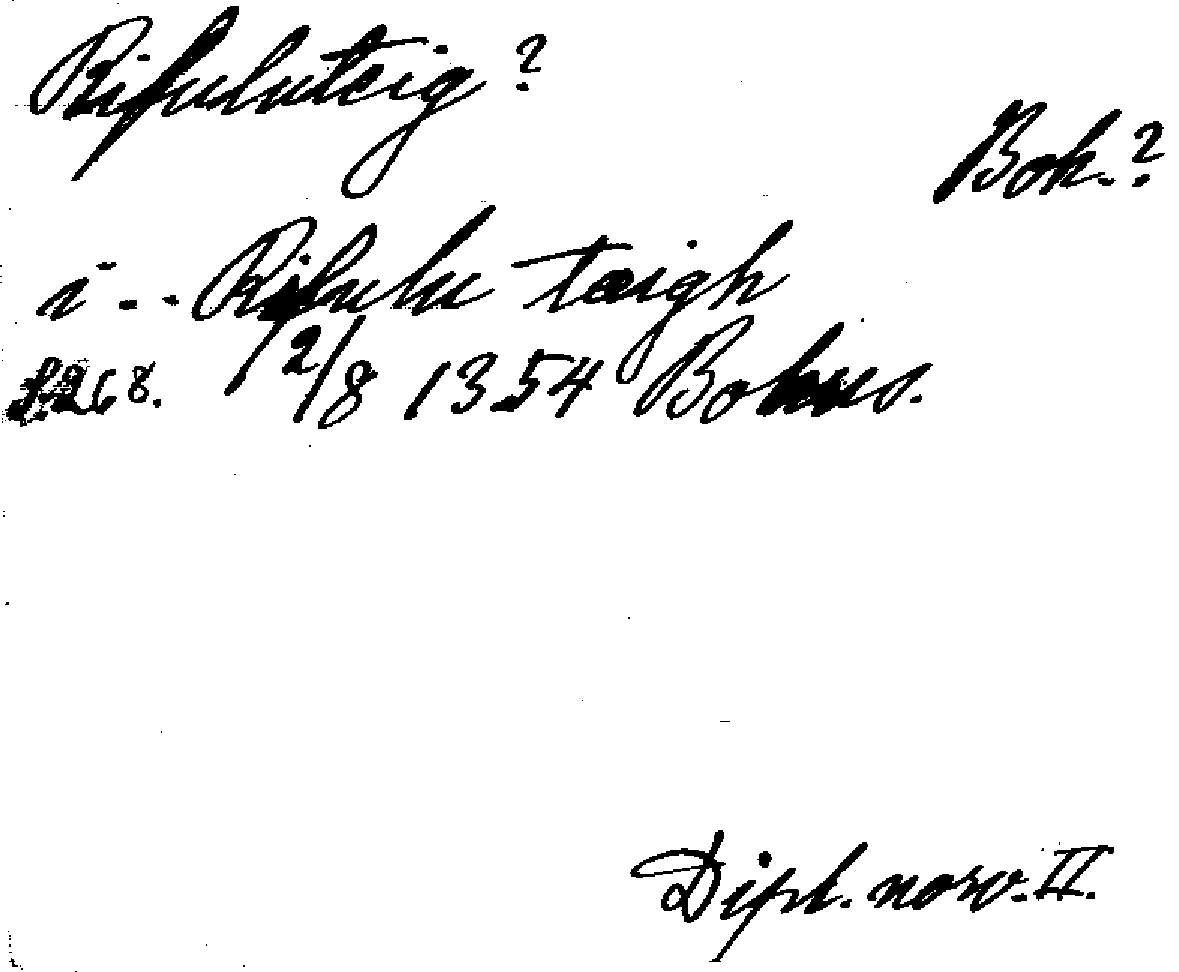 Rifuluteig?
Bok.?
i - - Rifulu tæigh
S. 268. 12/8 1354 Bohus.
Dipl. norv. II.